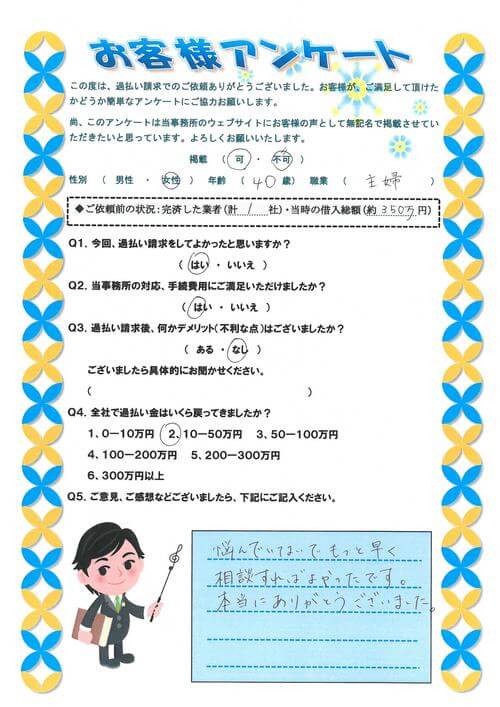 お客様アンケート
この度は、過払い請求でのご依頼ありがとうございました。お客様が、ご満足して頂けた
かどうか簡単なアンケートにご協力お願いします。
尚、このアンケートは当事務所のウェブサイトにお客様の声として無記名で掲載させてい
ただきたいと思っています。よろしくお願いいたします。
掲載 ( 可 ・ 不可 )
性別 ( 男性 ・ 女性 ) 年齢 ( 40 歳) 職業 ( 主婦 )
◆ご依頼前の状況:完済した業者(計 1 社)・当時の借入総額(約 350万 円)
Q1. 今回、過払い請求をしてよかったと思いますか?
( はい ・ いいえ )
Q2. 当事務所の対応、手続費用にご満足いただけましたか?
( はい ・ いいえ )
Q3. 過払い請求後、何かデメリット(不利な点)はございましたか?
( ある ・ なし )
ございましたら具体的にお聞かせください。
( )
Q4. 全社で過払い金はいくら戻ってきましたか?
1、0-10万円 2、10-50万円 3、50-100万円
4、100-200万円 5、200-300万円
6、300万円以上
Q5. ご意見、ご感想などございましたら、下記にご記入ください。
悩んでいないでもっと早く
相談すればよかったです。
本当にありがとうございました。